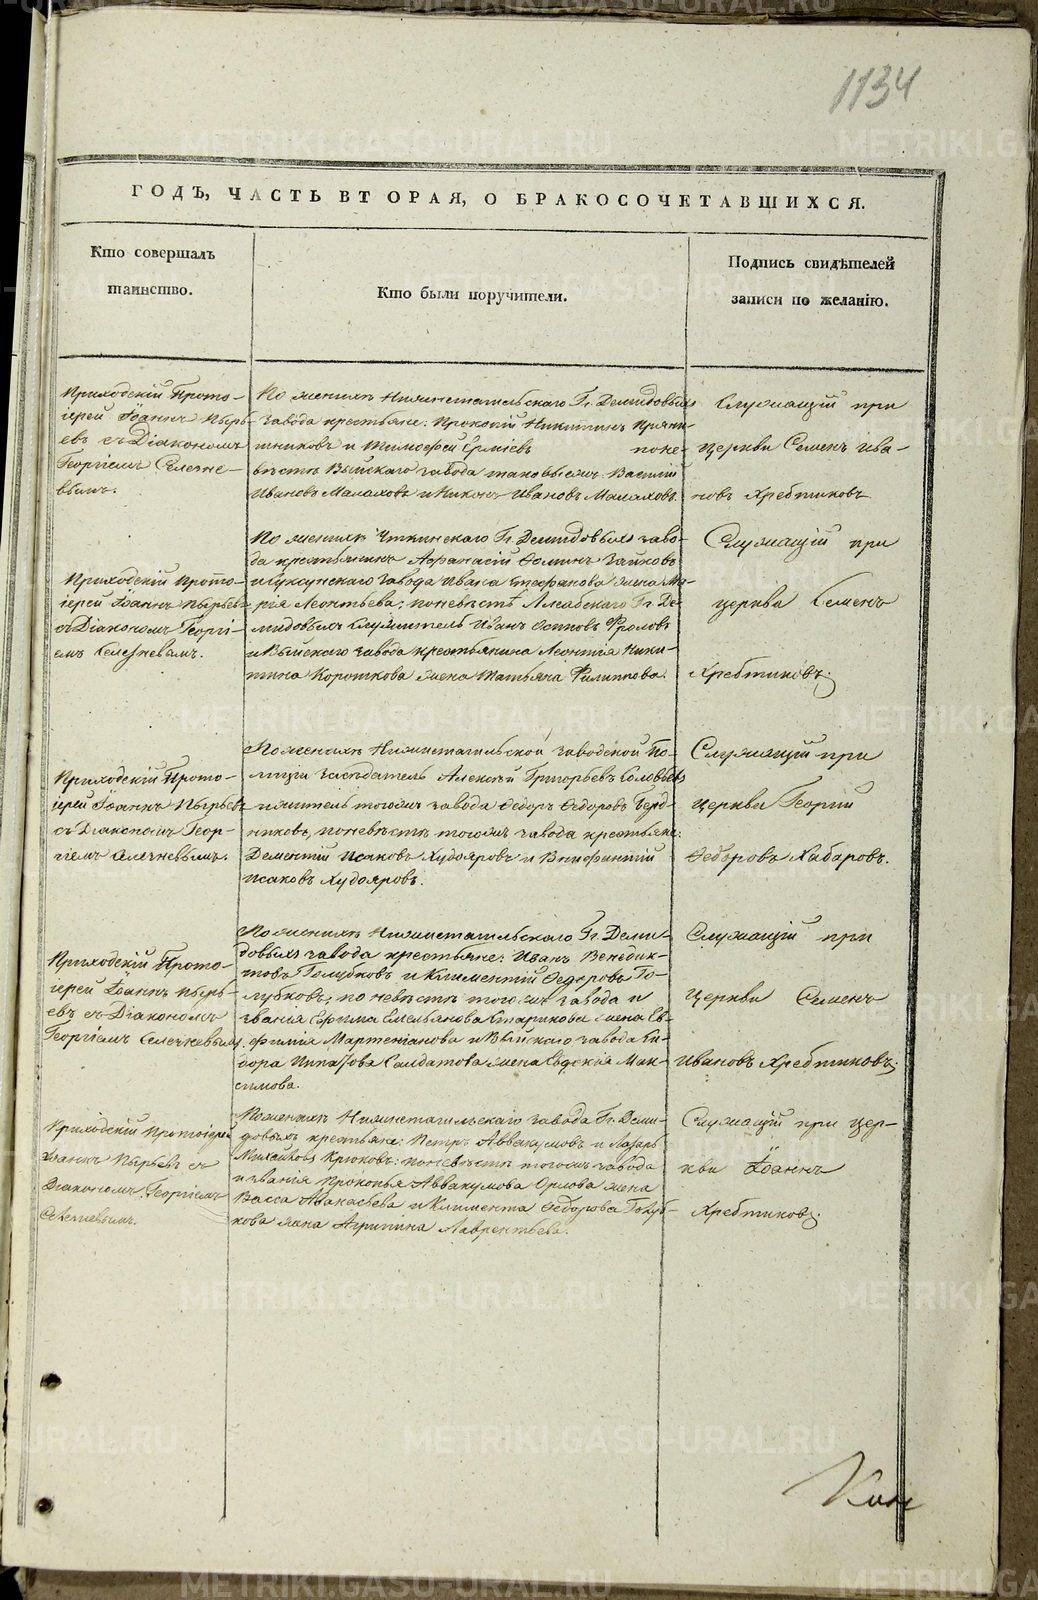 1134
ГОДЪ, ЧАСТЬ ВТОРАЯ, О БРАКОСОЧЕТАВШИХСЯ.
Кто совершалъ
таинство.
Кто были поручители.
Подпись свидѣтелей
записи по желанію.
Приходскій Прото-
іерей Іоаннъ Пырь-
евъ съ Діакономъ
Георгіемъ Селезне-
вымъ.
По женихѣ Нижнетагильскаго Гг. Демидовыхъ
завода крестьяне: Прокопій Никитинъ Пряни-
шниковъ и Тимофей Ермiевъ поне-
вѣстѣ Выйскаго завода таковыежъ Василій
Ивановъ Малаховъ и Никонъ Ивановъ Малаховъ.
Служащій при
церкви Семенъ Ива-
новъ Хребтиковъ
Приходскій Прото-
іерей Іоаннъ Пырьевъ
съ Діакономъ Георгі-
емъ Селезневымъ.
По женихѣ Уткинскаго Гг. Демидовыхъ заво-
да крестьянинъ Афанасій Фоминъ Зайковъ
и Суксунскаго завода Ивана Стефанова жена Ма-
рія Леонтьева; поневѣстѣ Гг. Де-
мидовыхъ служитель Иванъ Осиповъ Фроловъ
и Выйскаго завода крестьянина Леонтія Ники-
тина Короткова жена Татьяна Филиппова.
Служащій при
церкви Семенъ
Хребтиковъ.
Приходскій Прото-
іерей Іоаннъ Пырьевъ
съ Діакономъ Геор-
гіемъ Селезневымъ.
По женихѣ Нижнетагильской заводской По-
лиціи засѣдатель Алексѣй Григорьевъ Соловьевъ
и житель тогожъ завода Ѳедоръ Ѳедоровъ Берд-
никовъ, поневѣстѣ тогожъ завода крестьяне:
Дементій Исаковъ Худояровъ и Внифантій
Исаковъ Худояровъ.
Служащій при
церкви Георгій
Ѳедоровъ Хабаровъ.
Приходскій Прото-
іерей Іоаннъ Пырь-
евъ съ Діакономъ
Георгіемъ Селезневымъ.
По женихѣ Нижнетагильскаго Гг. Деми-
довыхъ завода крестьяне: Иванъ Венедик-
товъ Голубковъ и Климентій Ѳедоровъ Го-
лубковъ; по невѣстѣ тогожъ завода и
званія Ефима Емельянова Старикова жена Ев-
фимія Мартемьянова и Выйскаго завода Си-
дора Ипатова Солдатова жена Евдокія Мак-
симова.
Служащій при
церкви Семенъ
Ивановъ Хребтиковъ.
Приходскій Протоіерей
Іоаннъ Пырьевъ съ
Діакономъ Георгіемъ
Селезневымъ.
По женихѣ Нижнетагильскаго завода Гг. Деми-
довыхъ крестьяне: Петръ Аввакумовъ и Лазарь
Михайловъ Крюковъ: поневѣстѣ тогожъ завода
и званія Прокопья Аввакумова Орлова жена
Васса Афанасьева и Климента Ѳедорова Голуб-
кова жена Агрипина Лаврентьева.
Служащій при цер-
кви Іоаннъ
Хребтиковъ.
METRIKI.GASO-URAL.RU